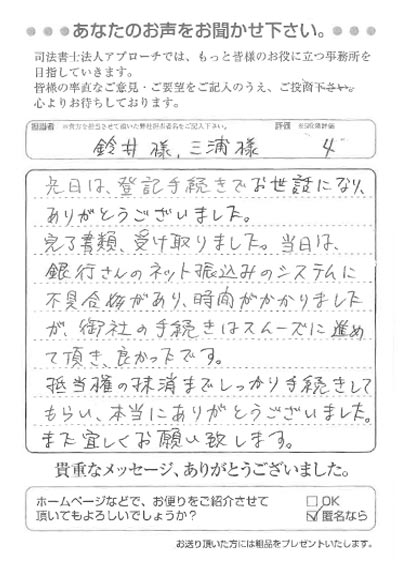 あなたのお声をお聞かせ下さい。
司法書士法人アプローチでは、もっと皆様のお役に立つ事務所を
目指していきます。
皆様の率直なご意見・ご要望をご記入のうえ、ご投函下さい。
心よりお待ちしております。
担当者 ※貴方を担当させて頂いた弊社担当者名をご記入下さい。 評価 ※5段階評価
鈴井様、三浦様 4
先日は、登記手続きでお世話になり、
ありがとうございました。
完了書類、受け取りました。当日は、
銀行さんのネット振込みのシステムに
不具合があり、時間がかかりました
が、御社の手続きはスムーズに進め
て頂き、良かったです。
抵当権の抹消までしっかり手続きして
もらい、本当にありがとうございました。
また宜しくお願い致します。
貴重なメッセージ、ありがとうございました。
ホームページなどで、お便りをご紹介させて
頂いてもよろしいでしょうか?
□OK
☑匿名なら
お送り頂いた方には粗品をプレゼントいたします。